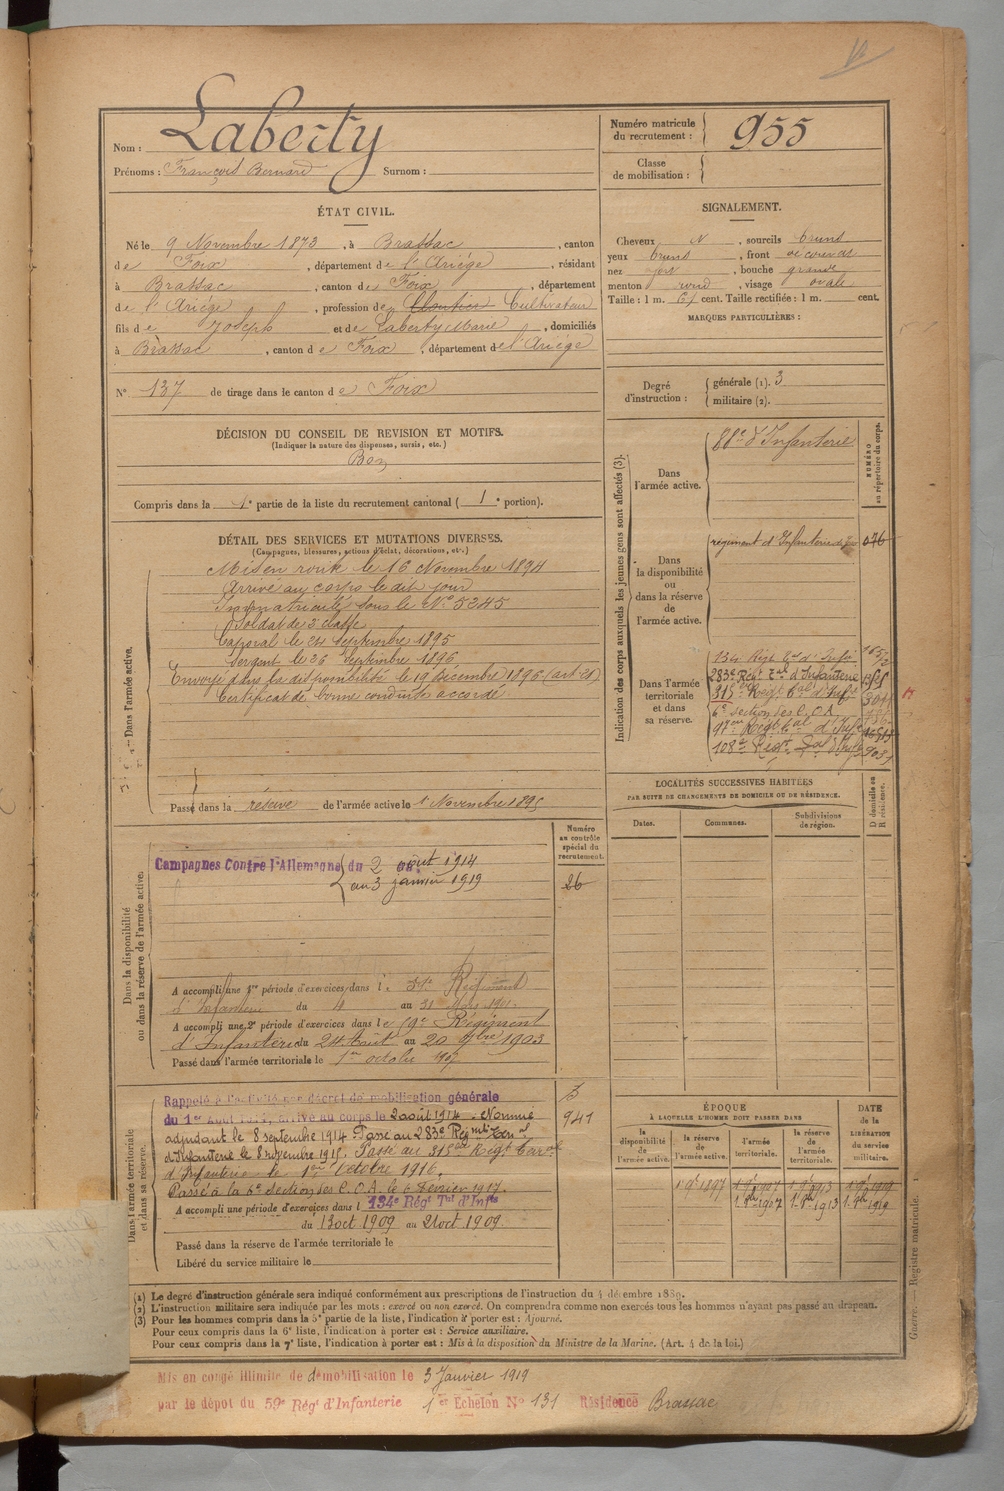 Nom : Laberty
Prénoms : François Bernard Surnom :
Numéro matricule
du recrutement : 955
Classe
de mobilisation :
ÉTAT CIVIL.
Né le 9 Novembre 1873, à Brassac, canton
de Foix, département de l'Ariège, résidant
à Brassac, canton de Foix, département
de l'Ariège, profession de Cultivateur
fils de Joseph et de Laberty Marie, domiciliés
à Brassac, canton de Foix, département de l'Ariège
N° 137 de tirage dans le canton de Foix
SIGNALEMENT.
Cheveux N, sourcils bruns
yeux bruns, front découvert
nez fort, bouche grande
menton rond, visage ovale
Taille : 1 m. cent. Taille rectifiée : 1 m. cent.
MARQUES PARTICULIÈRES :
Degré
d'instruction :
générale (1). 3
militaire (2).
DÉCISION DU CONSEIL DE REVISION ET MOTIFS.
(Indiquer la nature des dispenses, sursis, etc.)
Bon
Compris dans la 1e partie de la liste du recrutement cantonal ( 1e portion).
DÉTAIL DES SERVICES ET MUTATIONS DIVERSES.
(Campagnes, blessures, actions d'éclat, décorations, etc.)
Dans l'armée active.
Mis en route le 16 Novembre 1894
Arrivé au corps le dit jour
Immatriculé sous le N° 5245
Soldat de 2e classe
Caporal le 24 Septembre 1895
Sergent le 26 Septembre 1896
Envoyé dans la disponibilité le 19 Décembre 1896 (art 21)
Certificat de bonne conduite accordé
Passé dans la réserve de l'armée active le 1 Novembre 1895
Indication des corps auxquels les jeunes gens sont affectés (3).
NUMÉRO
au répertoire du corps.
Dans
l'armée active.
88e d'Infanterie
Dans
la disponibilité
ou
dans la réserve
de
l'armée active.
régiment d'Infanterie de 076
Dans l'armée
territoriale
et dans
sa réserve.
134 Régt tal d'Infie
283e Régt tal d'Infanterie
315e Régt tal d'Infie
6e section des C.O.A.
97e Régt tal d'Infie
108e Régt tal d'Infie
LOCALITÉS SUCCESSIVES HABITÉES
PAR SUITE DE CHANGEMENTS DE DOMICILE OU DE RÉSIDENCE.
Dates.
Communes.
Subdivisions
de région.
D domicile ou
R résidence.
Dans la disponibilité
ou dans la réserve de l'armée active.
Numéro
au contrôle
spécial du
recrutement.
26
Campagnes Contre l'Allemagne du 2 août 1914
au 3 janvier 1919
A accompli une 1re période d'exercices dans l Régiment
d'Infanterie du 4 au 31 Mars 1901.
A accompli une 2e période d'exercices dans le 59e Régiment
d'Infanterie du 24 Août au 20 7bre 1903
Passé dans l'armée territoriale le 1er octobre 1907
Dans l'armée territoriale
et dans sa réserve.
941
Rappelé à l'activité par décret de mobilisation générale
du 1er Août 1914, arrivé au corps le 2 août 1914. Nommé
adjudant le 8 septembre 1914. Passé au 283e Régiment terral
d'Infanterie le 8 novembre 1915. Passé au 315e Régt Terral
d'Infanterie le 1er Octobre 1916.
Passé à la 6e section des C.O.A. le 6 Février 1917.
A accompli une période d'exercices dans l 134e Régt Tal d'Infie
du 13 oct 1909 au 21 oct 1909.
Passé dans la réserve de l'armée territoriale le
Libéré du service militaire le
ÉPOQUE
À LAQUELLE L'HOMME DOIT PASSER DANS
DATE
de la
LIBÉRATION
du service
militaire.
la
disponibilité
de
l'armée active.
la réserve
de
l'armée active.
l'armée
territoriale.
la réserve
de
l'armée
territoriale.
1 9 1897
(1) Le degré d'instruction générale sera indiqué conformément aux prescriptions de l'instruction du 4 décembre 1889.
(2) L'instruction militaire sera indiquée par les mots : exercé ou non exercé. On comprendra comme non exercés tous les hommes n'ayant pas passé au drapeau.
(3) Pour les hommes compris dans la 5e partie de la liste, l'indication à porter est : Ajourné.
Pour ceux compris dans la 6e liste, l'indication à porter est : Service auxiliaire.
Pour ceux compris dans la 7e liste, l'indication à porter est : Mis à la disposition du Ministre de la Marine. (Art. 4 de la loi.)
Guerre. — Registre matricule. 1
Mis en congé illimité de démobilisation le 3 Janvier 1919
par le dépôt du 59e Régt d'Infanterie 1er Echelon N° 131 Résidence Brassac